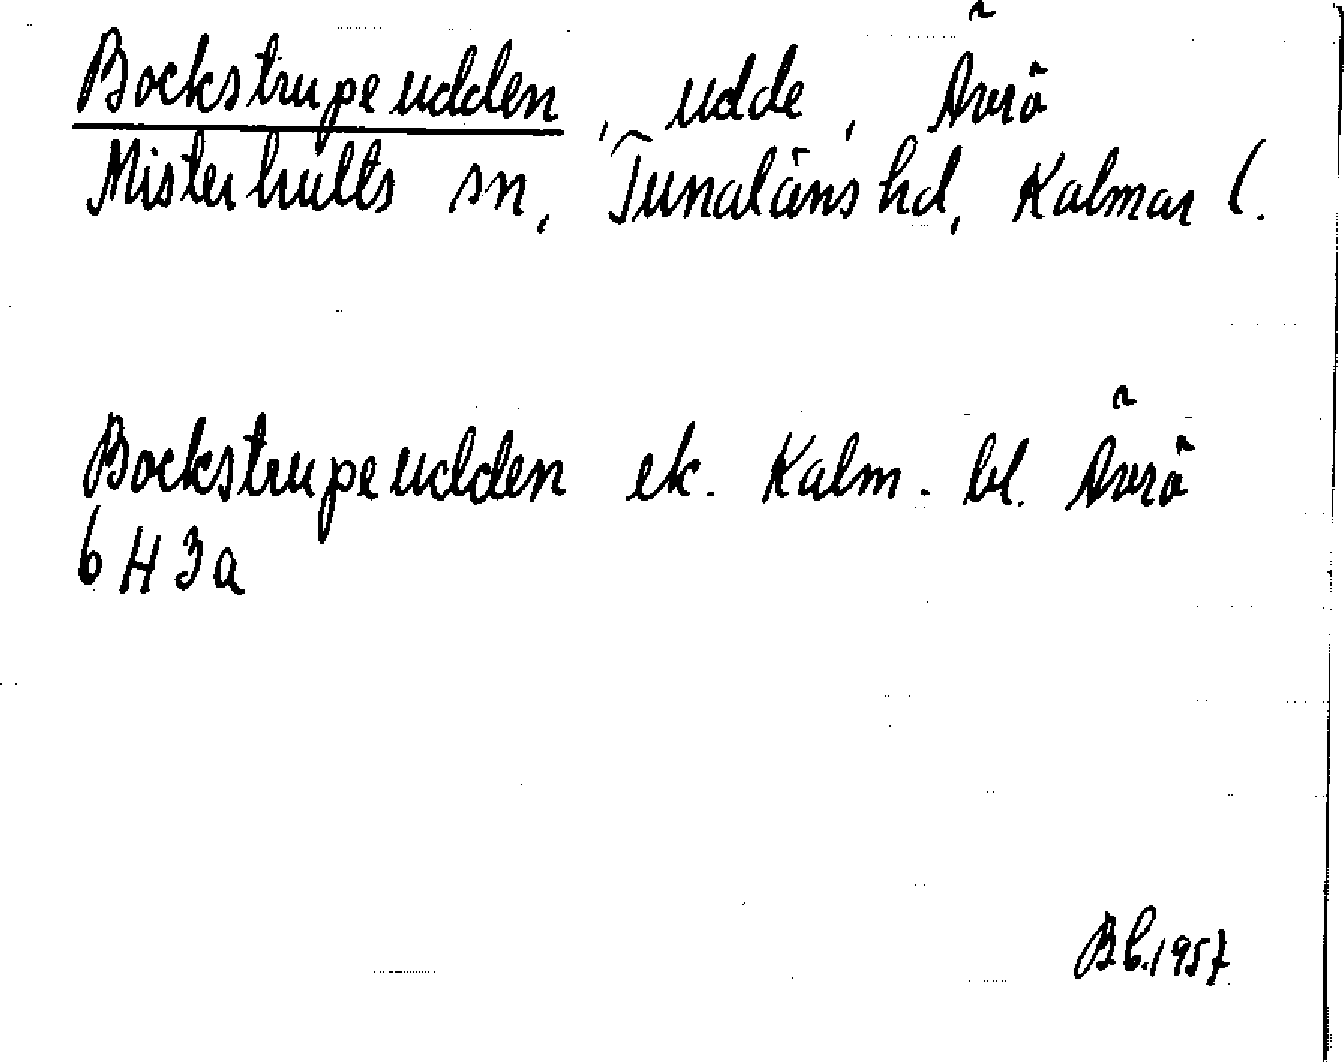 Bockstrupeudden, udde, Ävrö
Misterhults sn, Tunaläns hd, Kalmar l.
Bockstrupeudden ek. Kalm. bl. Ävrö
6 H 3a
Bb.1957